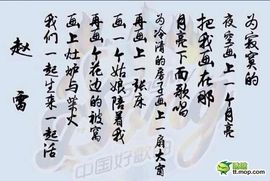 为寂寞的
夜空画上一个月亮
把我画在那
月亮下面歌唱
为冷清的房子画上一扇大窗
再画上一张床
画一个姑娘陪着我
再画个花边的被窝
画上灶炉与柴火
我们一起生来一起活
赵雷
中国好歌